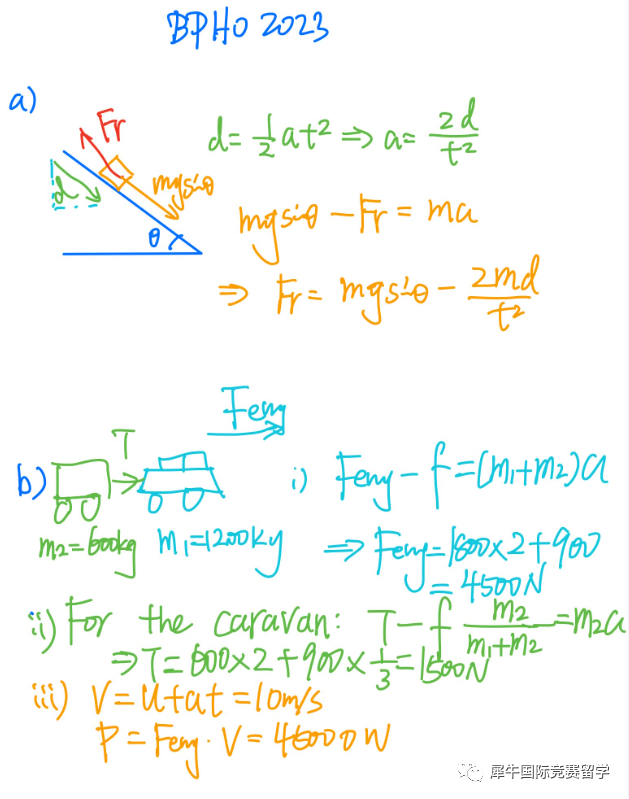 BPHO 2023
a)
Fr
d
mgsinθ
θ
d = 1/2 at² ⇒ a = 2d/t²
mgsinθ − Fr = ma
⇒ Fr = mgsinθ − 2md/t²
Feng
T
b)
m₂=600kg m₁=1200kg
i) Feng − f = (m₁+m₂)a
⇒ Feng = 1800×2+900
= 4500N
ii) For the caravan: T − f m₂/(m₁+m₂) = m₂a
⇒ T = 600×2+900×1/3 = 1500N
iii) V = u+at = 10m/s
P = Feng · V = 45000W
犀牛国际竞赛留学